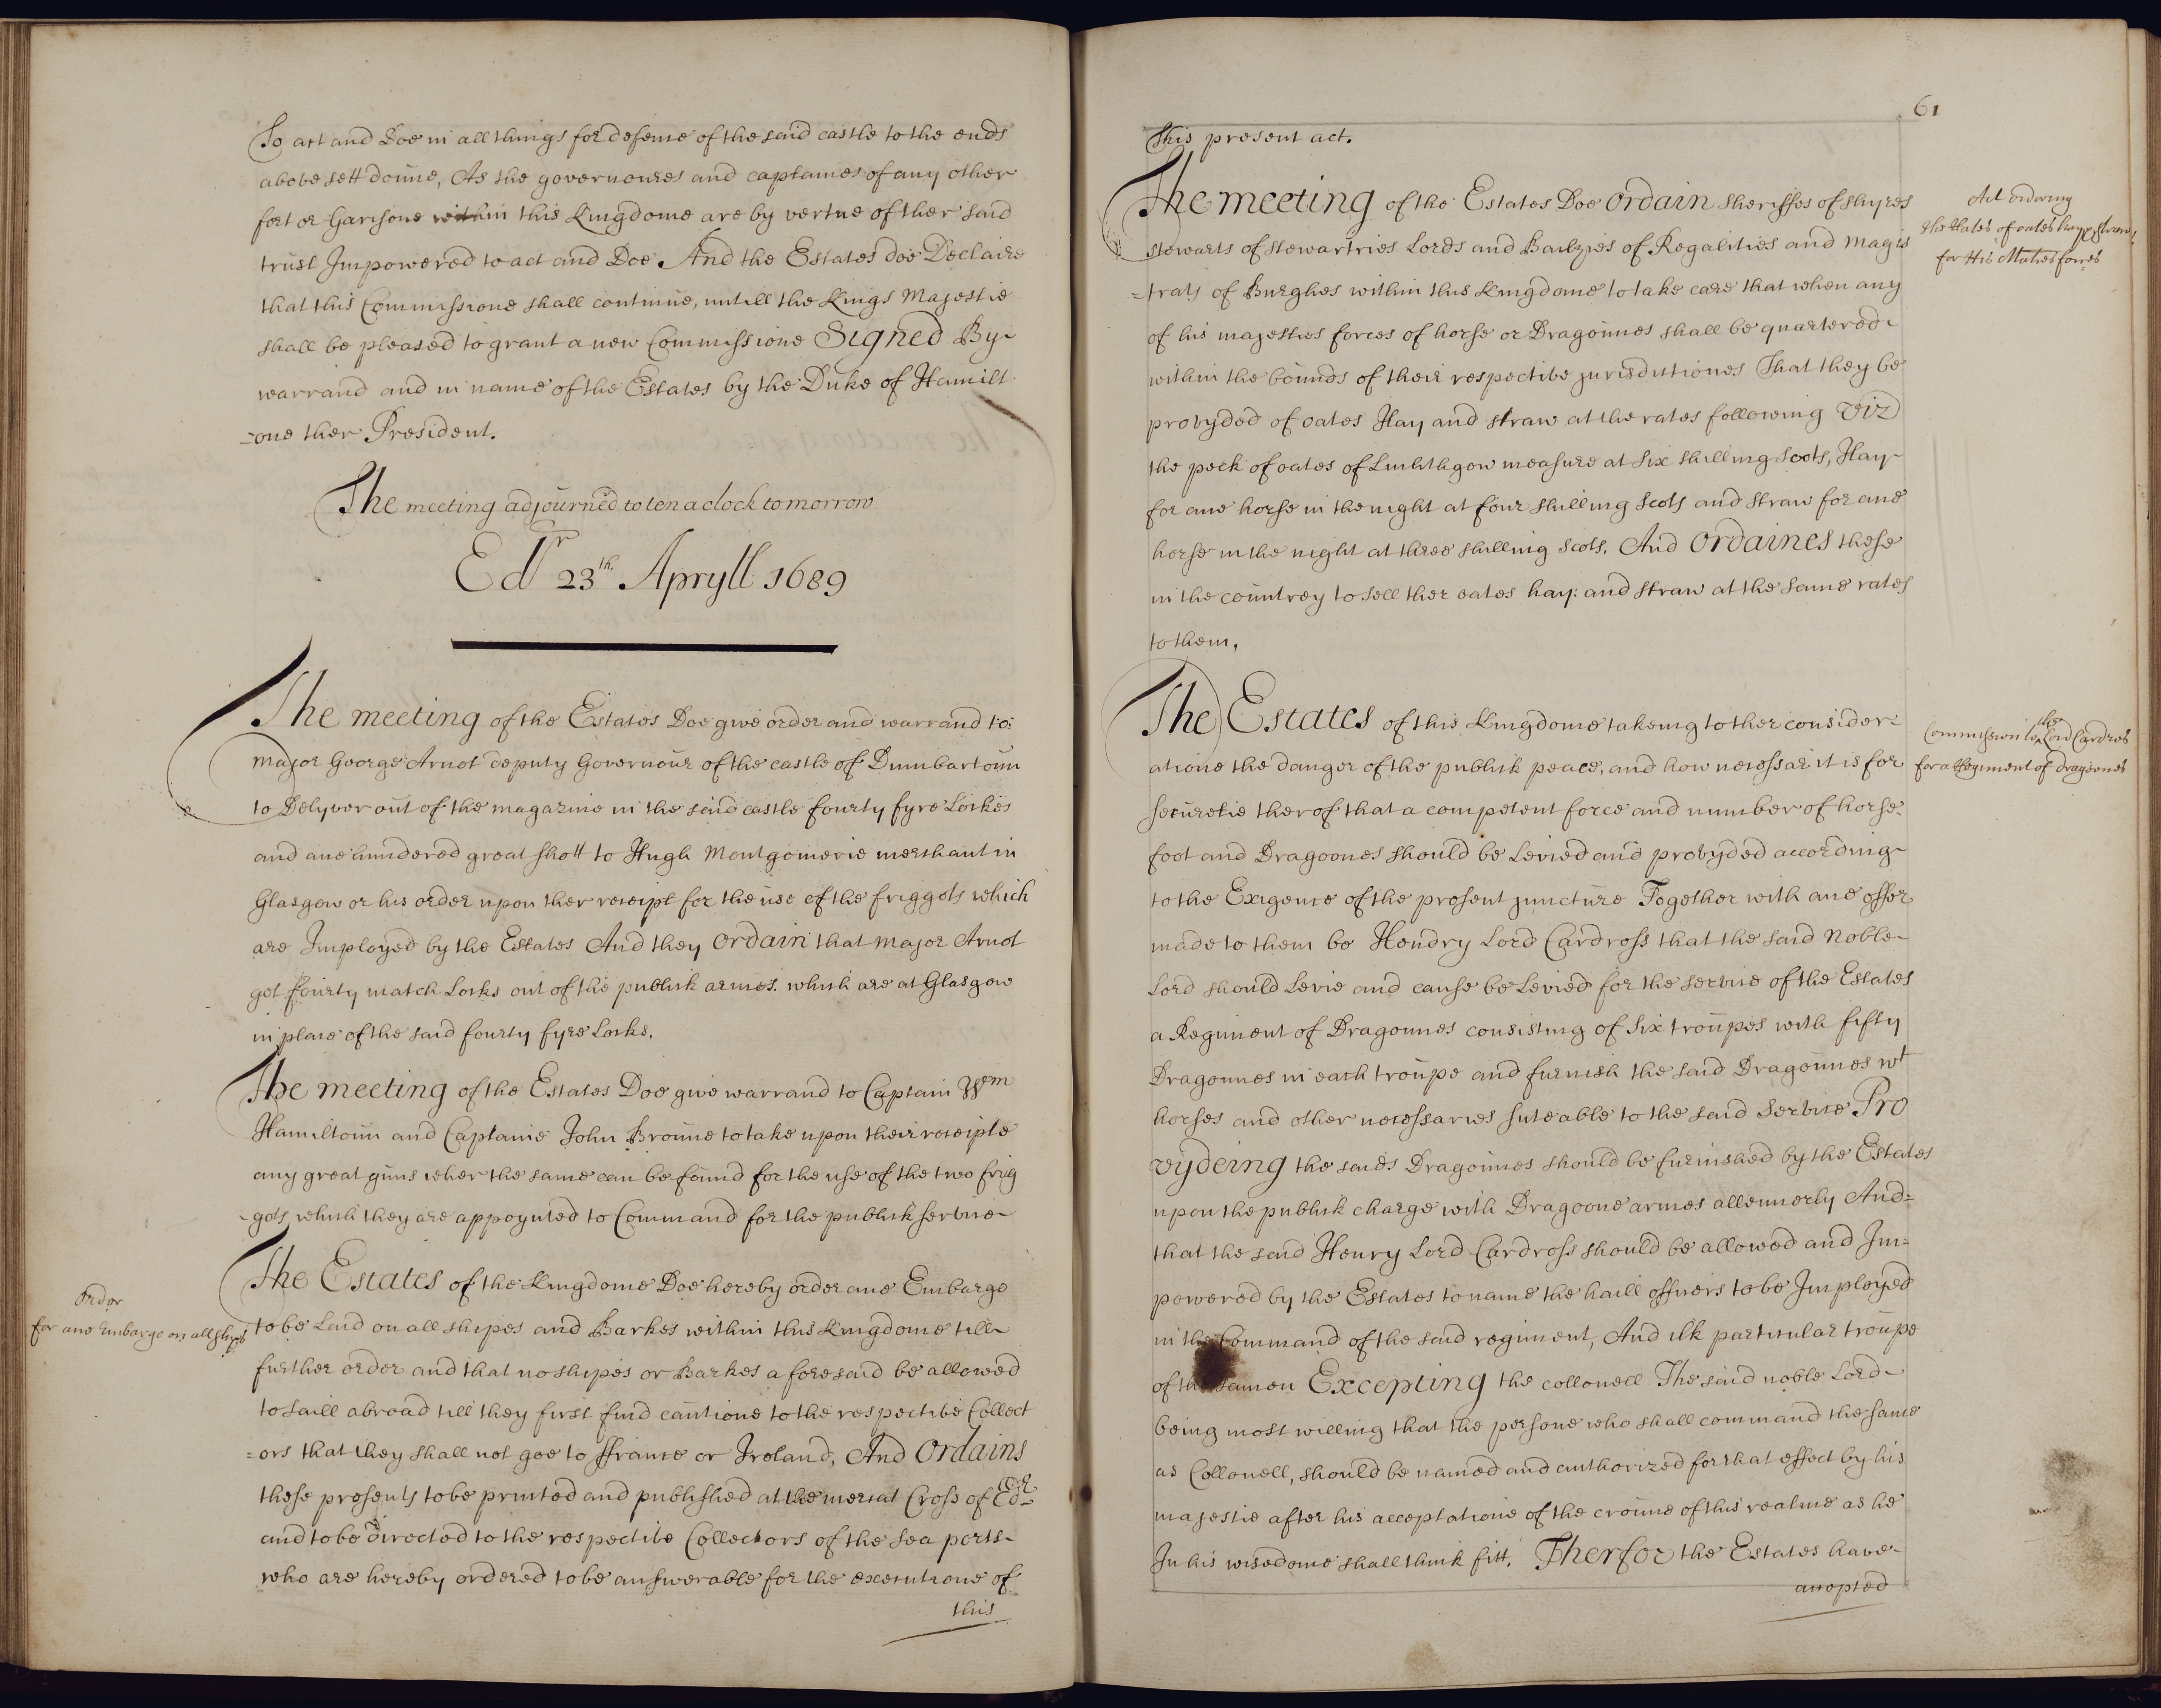 To act and Doe in all things for defence of the said castle to the ends
above sett doune, As the governoures and captaines of any other
fort or Garisone within this Kingdome are by vertue of ther said
trust Impowered to act and Doe And the Estates doe Declaire
that this Commissione shall continue, untill the Kings Majestie
shall be pleased to grant a new Commissione Signed By
warrand and in name of the Estates by the Duke of Hamilt
-one ther President.
The meeting adjourned to ten a clock tomorrow
Edr 23th Apryll 1689
The meeting of the Estates Doe give order and warrand to
Major George Arnot deputy Governour of the castle of Dumbartoun
to Delyver out of the magazine in the said castle fourty fyre Lockes
and ane hundered great shott to Hugh Montgomerie merchant in
Glasgow or his order upon ther receipt for the use of the friggots which
are Imployed by the Estates And they Ordain that Major Arnot
get fourty match Locks out of the publick armes which are at Glasgow
in place of the said fourty fyre Locks.
The meeting of the Estates Doe give warrand to Captain Wm
Hamiltoun and Captaine John Broune to take upon their receipts
any great guns wher the same can be found for the use of the two frig
-gots which they are appoynted to Command for the publick service
Order
for ane Embargo on all ships
The Estates of the Kingdome Doe hereby order ane Embargo
to be Laid on all shipes and Barkes within this Kingdome till
further order and that no shipes or Barkes aforesaid be allowed
to saill abroad till they first find cautione to the respective Collect
=ors that they shall not goe to ffrance or Ireland, And Ordains
these presents to be printed and published at the mercat Cross of Edr
and to be directed to the respective Collectors of the sea ports
who are hereby ordered to be answerable for the executione of
this
61
This present act.
Act ordering
the Rates of oates hay & straw
for His Maties forces
The meeting of the Estates Doe Ordain Sheriffes of shyres
stewarts of stewartries Lords and Bailzies of Regalities and Magis
=trats of Burghes within this Kingdome to take care that when any
of his majesties forces of horse or Dragounes shall be quartered
within the bounds of their respective jurisdictiones That they be
provyded of oates Hay and straw at the rates following Viz
the peck of oates of Linlithgow measure at six shilling Scots, Hay
for ane horse in the night at four shilling Scots and straw for ane
horse in the night at three shilling Scots. And Ordaines these
in the countrey to sell ther oates hay: and straw at the same rates
to them.
Commission to the Lord Cardros
for a Regiment of dragoones
The Estates of this Kingdome takeing to ther consider
atione the danger of the publick peace, and how necessar it is for
securetie therof that a competent force and number of horse
foot and Dragoones should be Levied and provyded according
to the Exigence of the present juncture Together with ane offer
made to them be Hendry Lord Cardross that the said Noble
Lord should Levie and cause be Levied for the service of the Estates
a Regiment of Dragounes consisting of six troupes with fifty
Dragounes in each troupe and furnish the said Dragounes wt
horses and other necessaries suteable to the said Service Pro
vydeing the saids Dragounes should be furnished by the Estates
upon the publick charge with Dragoone armes allennerly And=
that the said Henry Lord Cardross should be allowed and Im=
powered by the Estates to name the haill officers to be Imployed
in the Command of the said regiment, And ilk particular troupe
of the samen Excepting the collonell The said noble Lord
being most willing that the persone who shall command the same
as Collonell, should be named and authorized for that effect by his
majestie after his acceptatione of the croune of this realme as he
In his wisedome shall think fitt. Therfor the Estates have
accepted